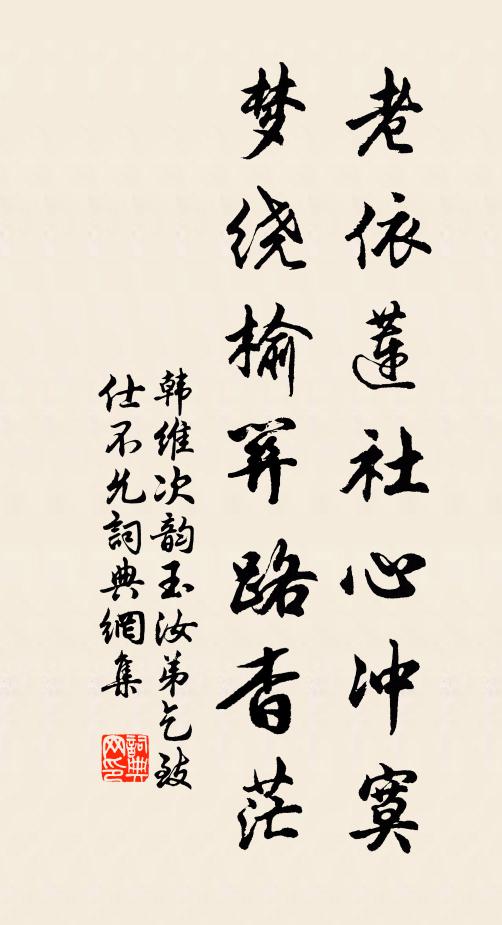 老依蓮社心冲寞
梦绕榆关路杳茫
韩维次韵玉汝弟乞致
仕不允詞典網集
詞典
网印